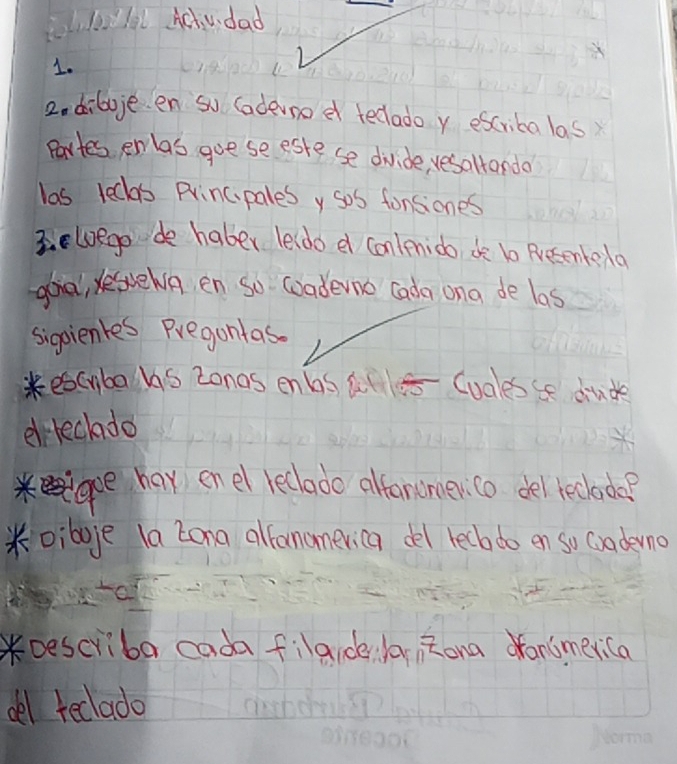 Actividad
1.
2. dibuje en su caderno el teclado y escriba las
Partes en las que se este se divide, resaltando
las teclas Principales y sus funsiones
3. luego de haber leido el contenido de la Presentela
guia, resuelva en su cuaderno cada una de las
siguientes Preguntas.
* escriba las zonas en las cuales se divide
el teclado
* que hay en el teclado alfanumerico del teclado?
* Dibuje la zona alfanumerica del teclado en su cuaderno
* Describa cada fila de la zona alfanúmerica
del teclado
Norma